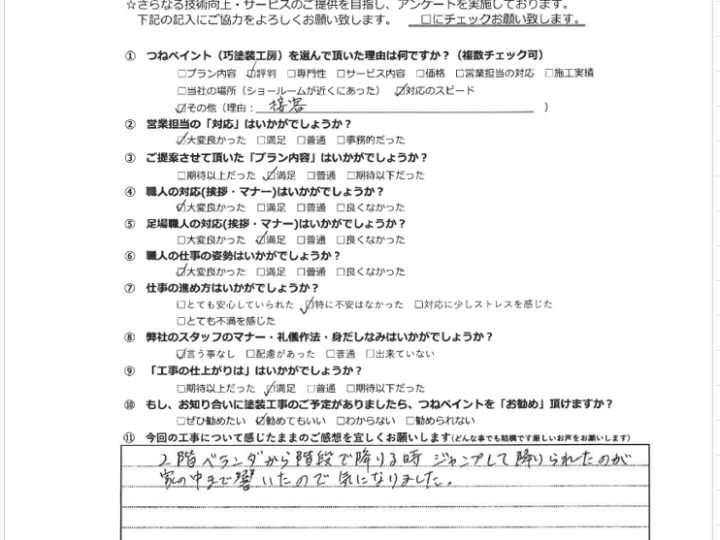 ☆さらなる技術向上・サービスのご提供を目指し、アンケートを実施しております。
下記の記入にご協力をよろしくお願い致します。 □にチェックお願い致します。
① つねペイント（巧塗装工房）を選んで頂いた理由は何ですか？（複数チェック可）
□プラン内容 ☑評判 □専門性 □サービス内容 □価格 □営業担当の対応 □施工実績
□当社の場所（ショールームが近くにあった） ☑対応のスピード
☑その他（理由： 接客 ）
② 営業担当の「対応」はいかがでしょうか？
☑大変良かった □満足 □普通 □事務的だった
③ ご提案させて頂いた「プラン内容」はいかがでしょうか？
□期待以上だった ☑満足 □普通 □期待以下だった
④ 職人の対応(挨拶・マナー)はいかがでしょうか？
☑大変良かった □満足 □普通 □良くなかった
⑤ 足場職人の対応(挨拶・マナー)はいかがでしょうか？
□大変良かった ☑満足 □普通 □良くなかった
⑥ 職人の仕事の姿勢はいかがでしょうか？
☑大変良かった □満足 □普通 □良くなかった
⑦ 仕事の進め方はいかがでしょうか？
□とても安心していられた ☑特に不安はなかった □対応に少しストレスを感じた
□とても不満を感じた
⑧ 弊社のスタッフのマナー・礼儀作法・身だしなみはいかがでしょうか？
☑言う事なし □配慮があった □普通 □出来ていない
⑨ 「工事の仕上がりは」はいかがでしょうか？
□期待以上だった ☑満足 □普通 □期待以下だった
⑩ もし、お知り合いに塗装工事のご予定がありましたら、つねペイントを「お勧め」頂けますか？
□ぜひ勧めたい ☑勧めてもいい □わからない □勧められない
⑪ 今回の工事について感じたままのご感想を宜しくお願いします(どんな事でも結構です厳しいお声をお願いします)
2階ベランダから階段で降りる時 ジャンプして降りられたのが
家の中まで響いたので 気になりました。